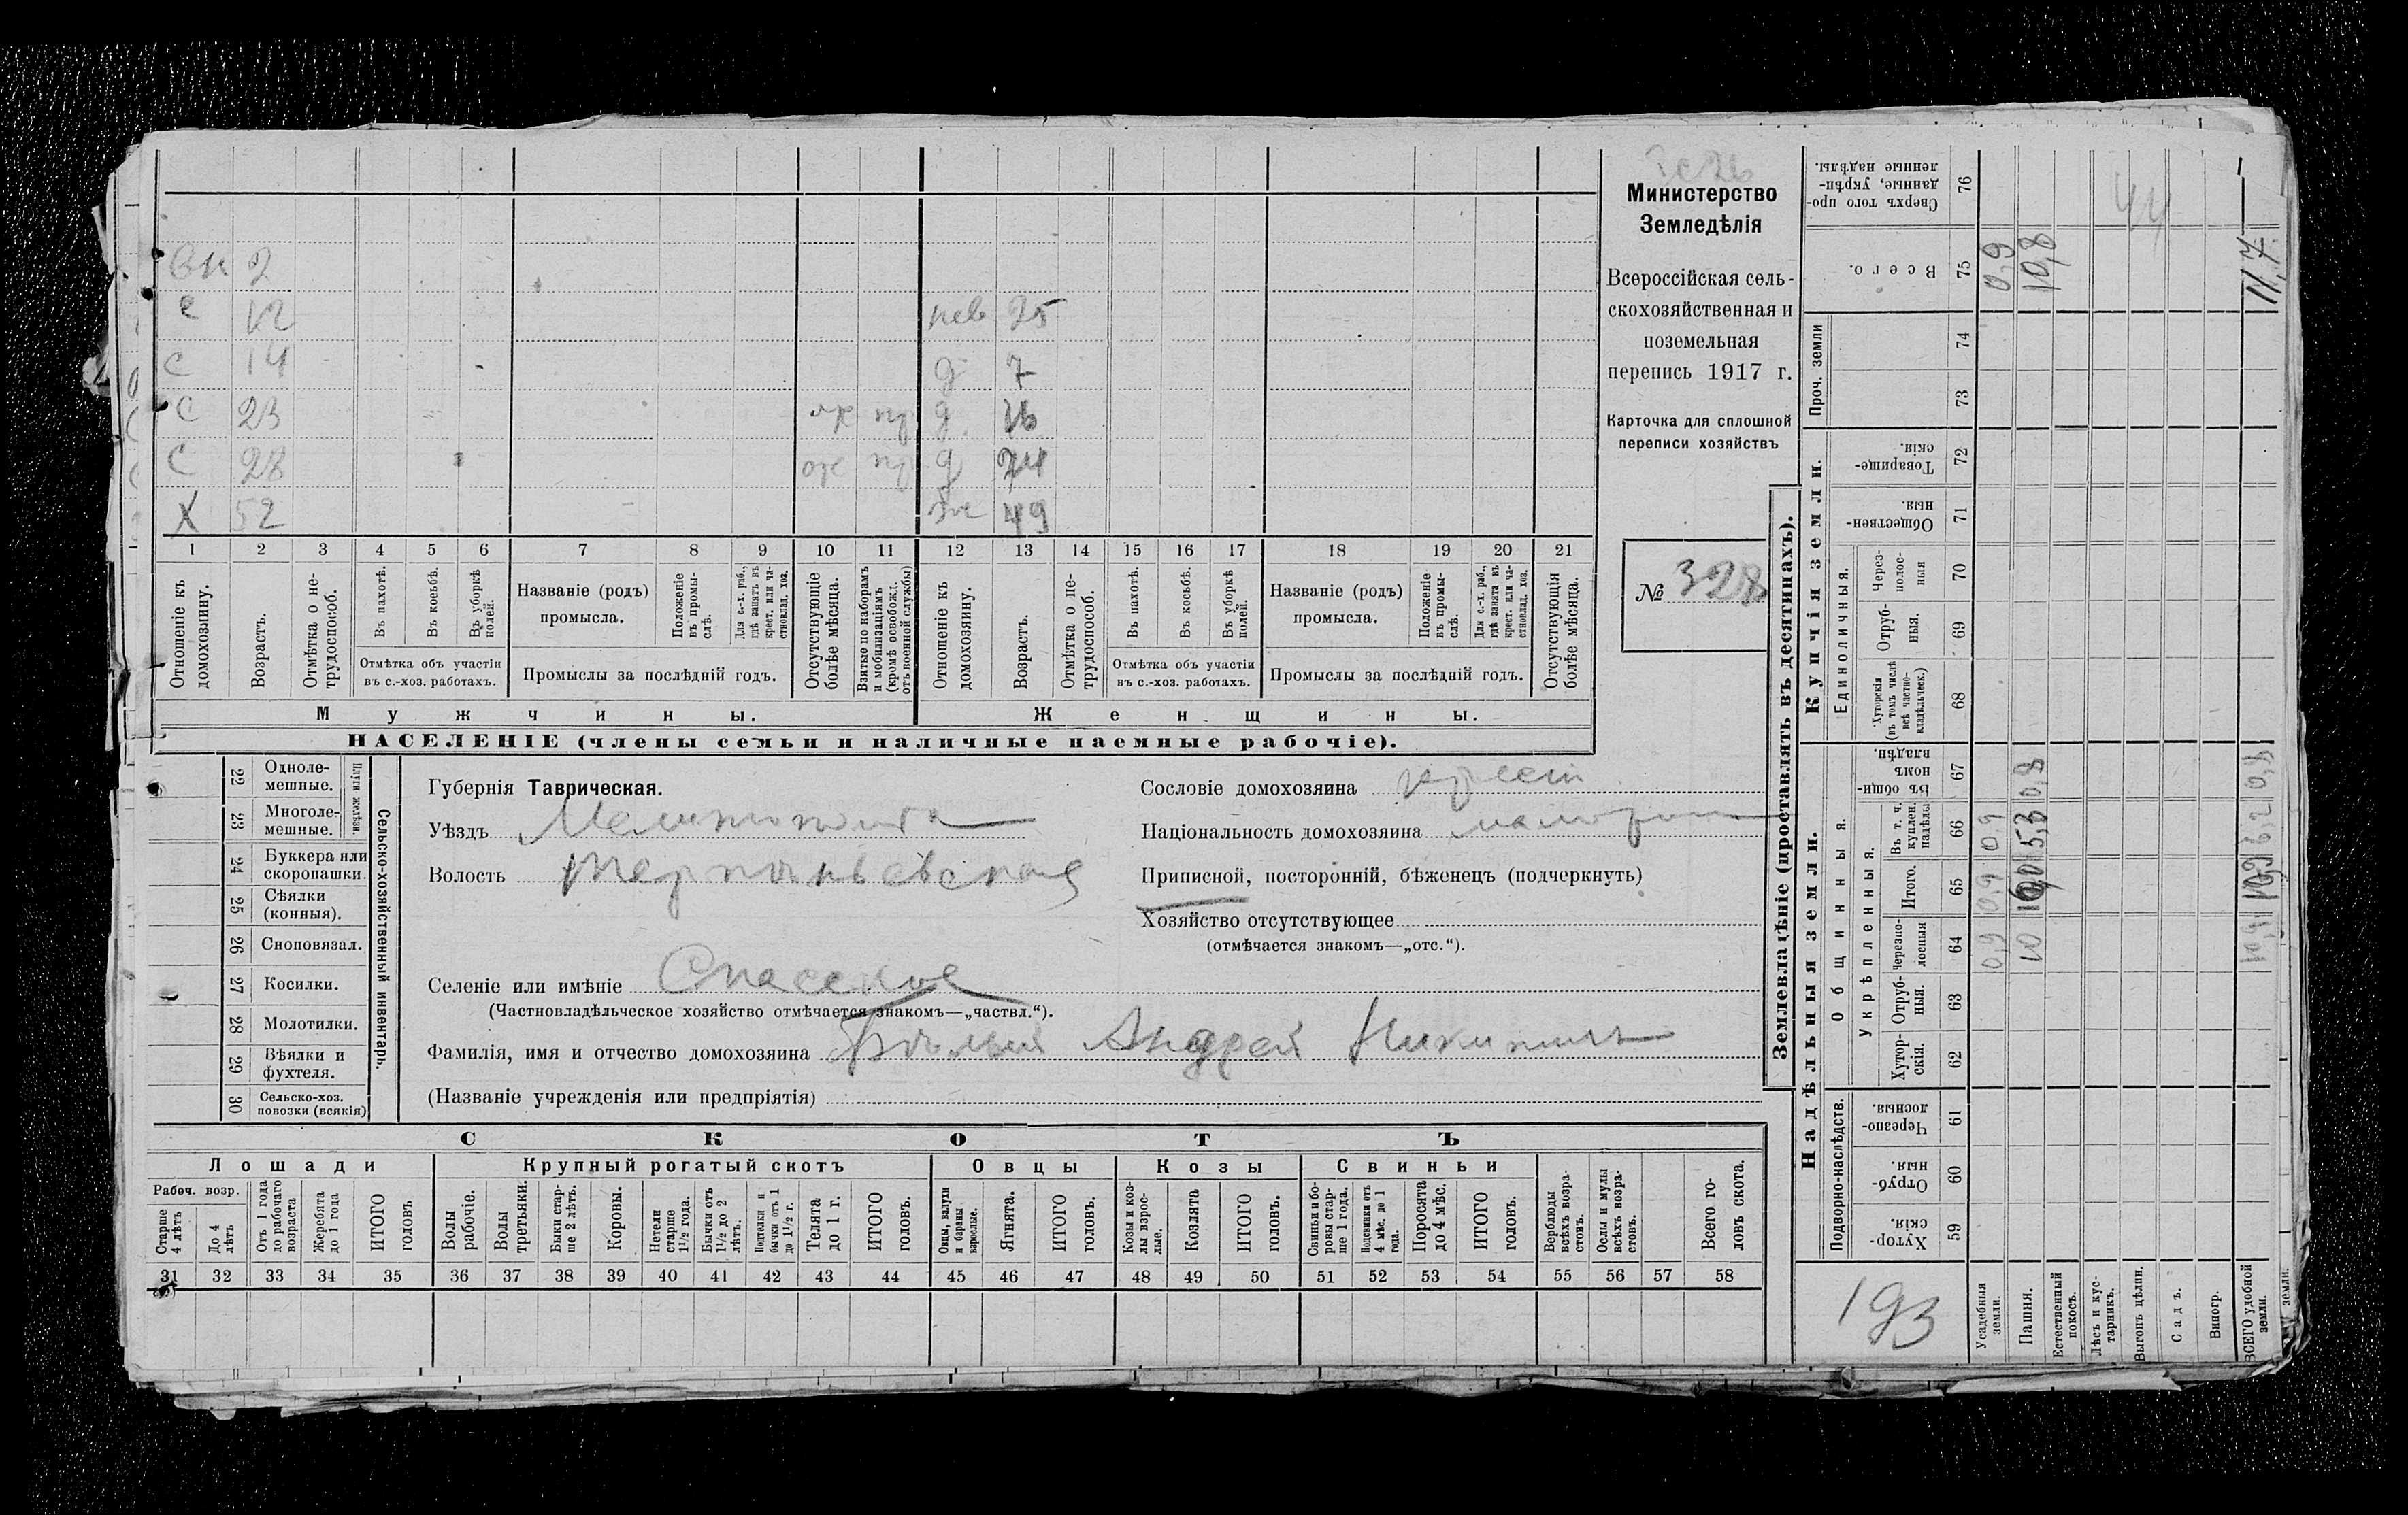 Министерство
Земледѣлія
Всероссійская сель-
скохозяйственная и
поземельная
перепись 1917 г.
Карточка для сплошной
переписи хозяйствъ
№ 328
вн 2
с 12 нев 25
с 14 д 7
с 23 от д 16
с 28 от д
Х 52 ж 49
1 2 3 4 5 6 7 8 9 10 11 12 13 14 15 16 17 18 19 20 21
Отношеніе къ домохозяину.
Возрастъ.
Отмѣтка о не-трудоспособ.
Въ пахотѣ.
Въ косьбѣ.
Въ уборкѣ полей.
Отмѣтка объ участіи
въ с.-хоз. работахъ.
Названіе (родъ)
промысла.
Положеніе въ промы-слѣ.
Для с.-х. раб., гдѣ занятъ въ крест. или ча-стновлад. хоз.
Промыслы за послѣдній годъ.
Отсутствующіе болѣе мѣсяца.
Взятые по наборамъ и мобилизаціямъ (кромѣ освобожд. отъ военной службы)
Отношеніе къ домохозяину.
Возрастъ.
Отмѣтка о не-трудоспособ.
Въ пахотѣ.
Въ косьбѣ.
Въ уборкѣ полей.
Отмѣтка объ участіи
въ с.-хоз. работахъ.
Названіе (родъ)
промысла.
Положеніе въ промы-слѣ.
Для с.-х. раб., гдѣ занята въ крест. или ча-стновлад. хоз.
Промыслы за послѣдній годъ.
Отсутствующія болѣе мѣсяца.
Мужчины. Женщины.
НАСЕЛЕНІЕ (члены семьи и наличные наемные рабочіе).
22 Одноле-мешные.
23 Многоле-мешные.
Плуги желѣзн.
24 Буккера или скоропашки.
25 Сѣялки (конныя).
26 Сноповязал.
27 Косилки.
28 Молотилки.
29 Вѣялки и фухтеля.
30 Сельско-хоз. повозки (всякія)
Сельско-хозяйственный инвентарь.
Губернія Таврическая.
Уѣздъ
Волость Терпеньевская
Селеніе или имѣніе Спасское
(Частновладѣльческое хозяйство отмѣчается знакомъ—„частвл.“).
Фамилія, имя и отчество домохозяина Андрей Никитичъ
(Названіе учрежденія или предпріятія)
Сословіе домохозяина крест
Національность домохозяина малор
Приписной, посторонній, бѣженецъ (подчеркнуть)
Хозяйство отсутствующее
(отмѣчается знакомъ—„отс.“).
СКОТЪ
Лошади Крупный рогатый скотъ Овцы Козы Свиньи
Рабоч. возр.
Старше 4 лѣтъ
До 4 лѣтъ
Отъ 1 года до рабочаго возраста
Жеребята до 1 года
ИТОГО головъ
Волы рабочіе.
Волы третьяки.
Быки стар-ше 2 лѣтъ.
Коровы.
Нетели старше 1½ года.
Бычки отъ 1½ до 2 лѣтъ.
Подтелки и бычки отъ 1 до 1½ г.
Телята до 1 г.
ИТОГО головъ.
Овцы, валухи и бараны взрослые.
Ягнята.
ИТОГО головъ.
Козы и коз-лы взрос-лые.
Козлята
ИТОГО головъ.
Свиньи и бо-ровы стар-ше 1 года.
Подсвинки отъ 4 мѣс. до 1 года.
Поросята до 4 мѣс.
ИТОГО головъ.
Верблюды всѣхъ возра-стовъ.
Ослы и мулы всѣхъ возра-стовъ.
Всего го-ловъ скота.
31 32 33 34 35 36 37 38 39 40 41 42 43 44 45 46 47 48 49 50 51 52 53 54 55 56 57 58
Землевладѣніе (проставлять въ десятинахъ).
Надѣльныя земли. Купчія земли. Проч. земли
Подворно-наслѣдств. Общинныя. Укрѣпленныя. Единоличныя.
59 Хутор-скія.
60 Отруб-ныя.
61 Черезпо-лосныя.
62 Хутор-скія.
63 Отруб-ныя.
64 Черезпо-лосныя
65 Итого.
66 Въ т. ч. куплен. надѣлы
67 Въ общи-номъ владѣн.
68 Хуторскія (въ томъ числѣ всѣ частно-владѣльческ.)
69 Отруб-ныя.
70 Через-полос-ныя
71 Обществен-ныя
72 Товарище-скія
73
74
75 Всего.
76 Сверхъ того про-данные, укрѣп-ленные надѣлы.
Усадебныя земли. 0,9 0,9 0,9 0,9
Пашня. 10 5,3 0,8 10,8
Естественный покосъ.
Лѣсъ и кус-тарникъ.
Выгонъ цѣлин.
Садъ.
Виногр.
ВСЕГО удобной земли. 10,9 10,9 6,2 0,8 11,7
44
193